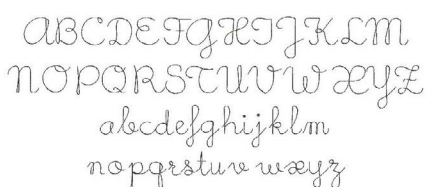 ABCDEFGHIJKLM
NOPQRSTUVWXYZ
abcdefghijklm
nopqrstuv wxyz